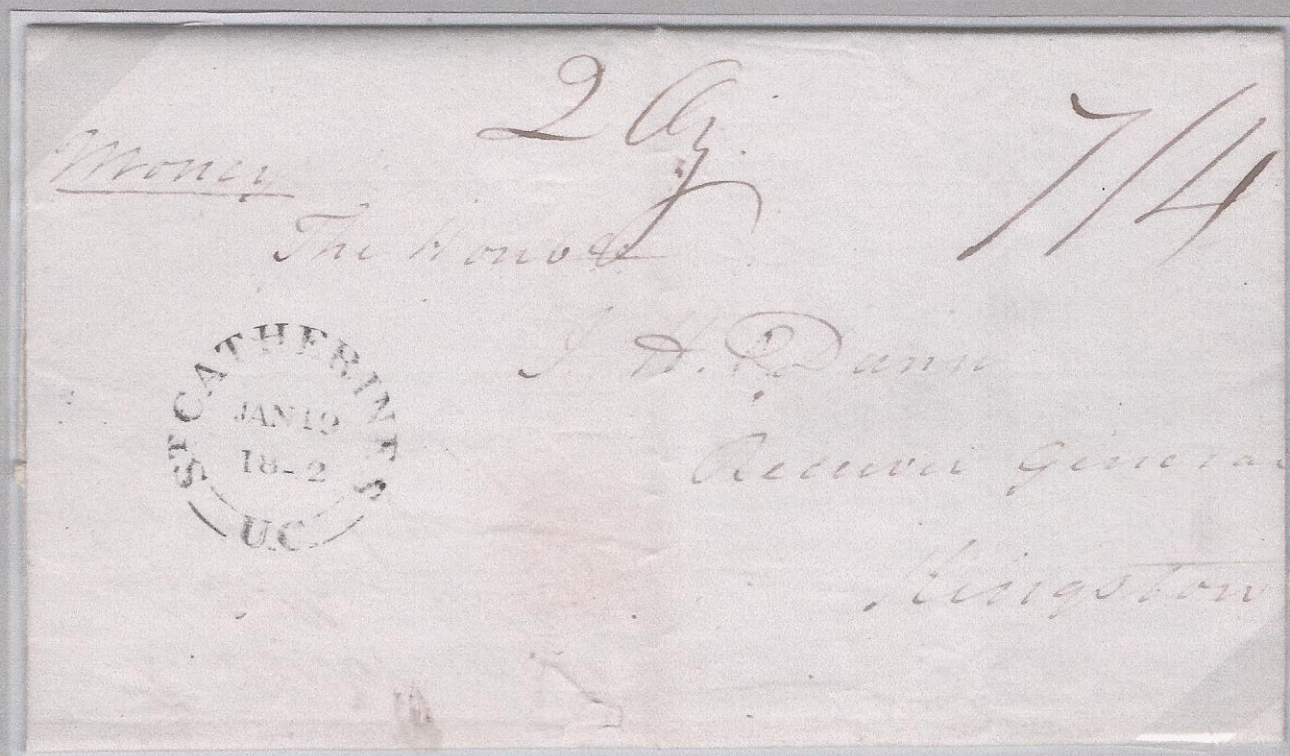 2 Oz 7/4
Money
The Honble
J. H. Dunn
Receiver General
Kingston
ST CATHERINES
JAN 19
18-2
U.C.